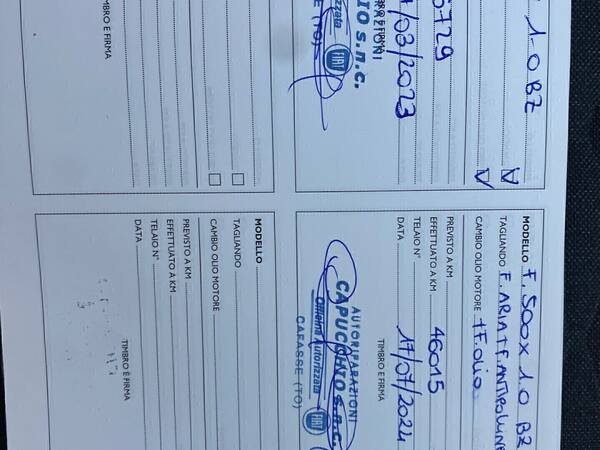 1.0 BZ
V
V
6729
/03/2023
TIMBRO E FIRMA
RIPARAZIONI
IO s.n.c.
rizzata
FIAT
SSE (TO)
TIMBRO E FIRMA
MODELLO F. 500X 1.0 BZ
TAGLIANDO F. ARIA + F. ANTIPOLLINE
CAMBIO OLIO MOTORE + F. OLIO
PREVISTO A KM
EFFETTUATO A KM 46015
TELAIO N°
DATA 17/07/2024
TIMBRO E FIRMA
AUTORIPARAZIONI
CAPUCCHIO s.n.c.
Officina Autorizzata
FIAT
CAFASSE (TO)
MODELLO
TAGLIANDO
CAMBIO OLIO MOTORE
PREVISTO A KM
EFFETTUATO A KM
TELAIO N°
DATA
TIMBRO E FIRMA